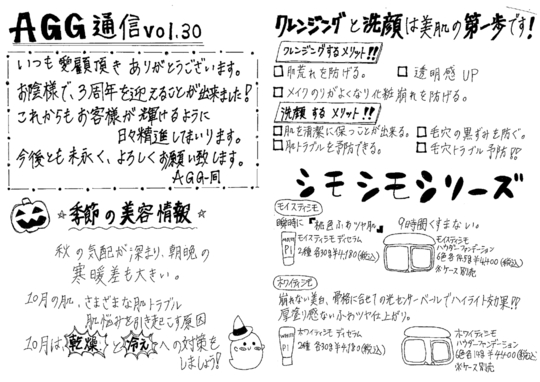 AGG通信 vol.30
いつも愛顧頂きありがとうございます。
お陰様で、3周年を迎えることが出来ました!
これからもお客様が輝けるように
日々精進してまいります。
今後とも末永く、よろしくお願い致します。
AGG一同
☆季節の美容情報☆
秋の気配が深まり、朝晩の
寒暖差も大きい。
10月の肌、さまざまな肌トラブル
肌悩みを引き起こす原因
10月は、乾燥と冷えへの対策を
しましょう!
クレンジングと洗顔は美肌の第一歩です!
クレンジングするメリット!!
□肌荒れを防げる。 □透明感UP
□メイクのりがよくなり化粧崩れを防げる。
洗顔するメリット!!
□肌を清潔に保つことが出来る。 □毛穴の黒ずみを防ぐ。
□肌トラブルを予防できる。 □毛穴トラブル予防!!
シモシモシリーズ
モイスティシモ
瞬時に『桜色ふわツヤ肌』 9時間くすまない。
モイスティシモ デイセラム
2種 各30g ¥4180(税込)
モイスティシモ
パウダーファンデーション
6色 各14.5g ¥4400(税込)
※ケース別売
ホワイティシモ
崩れない美白、骨格に合せての光センサーベールでハイライト効果!!
厚塗り感ないふわツヤ仕上がり。
ホワイティシモ デイセラム
2種 各30g ¥4180(税込)
ホワイティシモ
パウダーファンデーション
6色 各14g ¥4400(税込)
※ケース別売